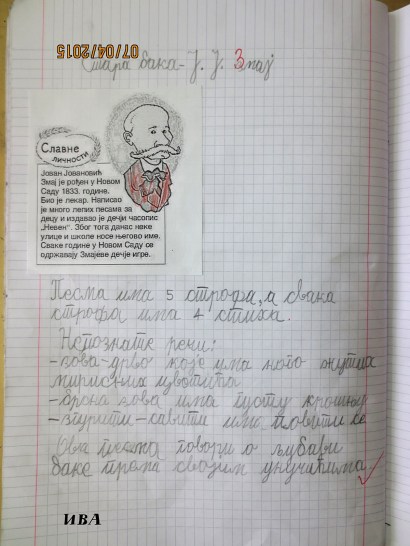 07/04/2015
Стара бака - Ј. Ј. Змај
Славне
личности
Јован Јовановић
Змај је рођен у Новом
Саду 1833. године.
Био је лекар. Написао
је много лепих песама за
децу и издавао је дечји часопис
„Невен“. Због тога данас неке
улице и школе носе његово име.
Сваке године у Новом Саду се
одржавају Змајеве дечје игре.
Песма има 5 строфа, а свака
строфа има 4 стиха.
Непознате речи:
-зова-дрво које има жутих
мирисних цветића
- зова има густу крошњу
- -савити или повити се
Ова песма говори о љубави
баке према својим унучићима
ИВА